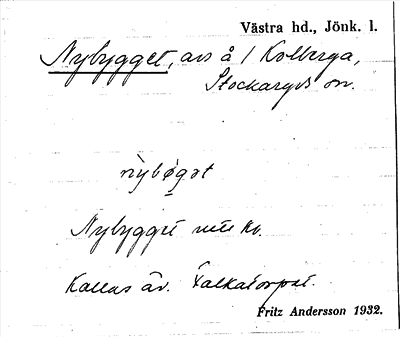 Västra hd., Jönk. l.
Nybygget, avs å 1 Kolberga,
Stockaryds sn.
nỳbøgət
Nybygget
Kallas äv. Falkatorpet.
Fritz Andersson 1932.